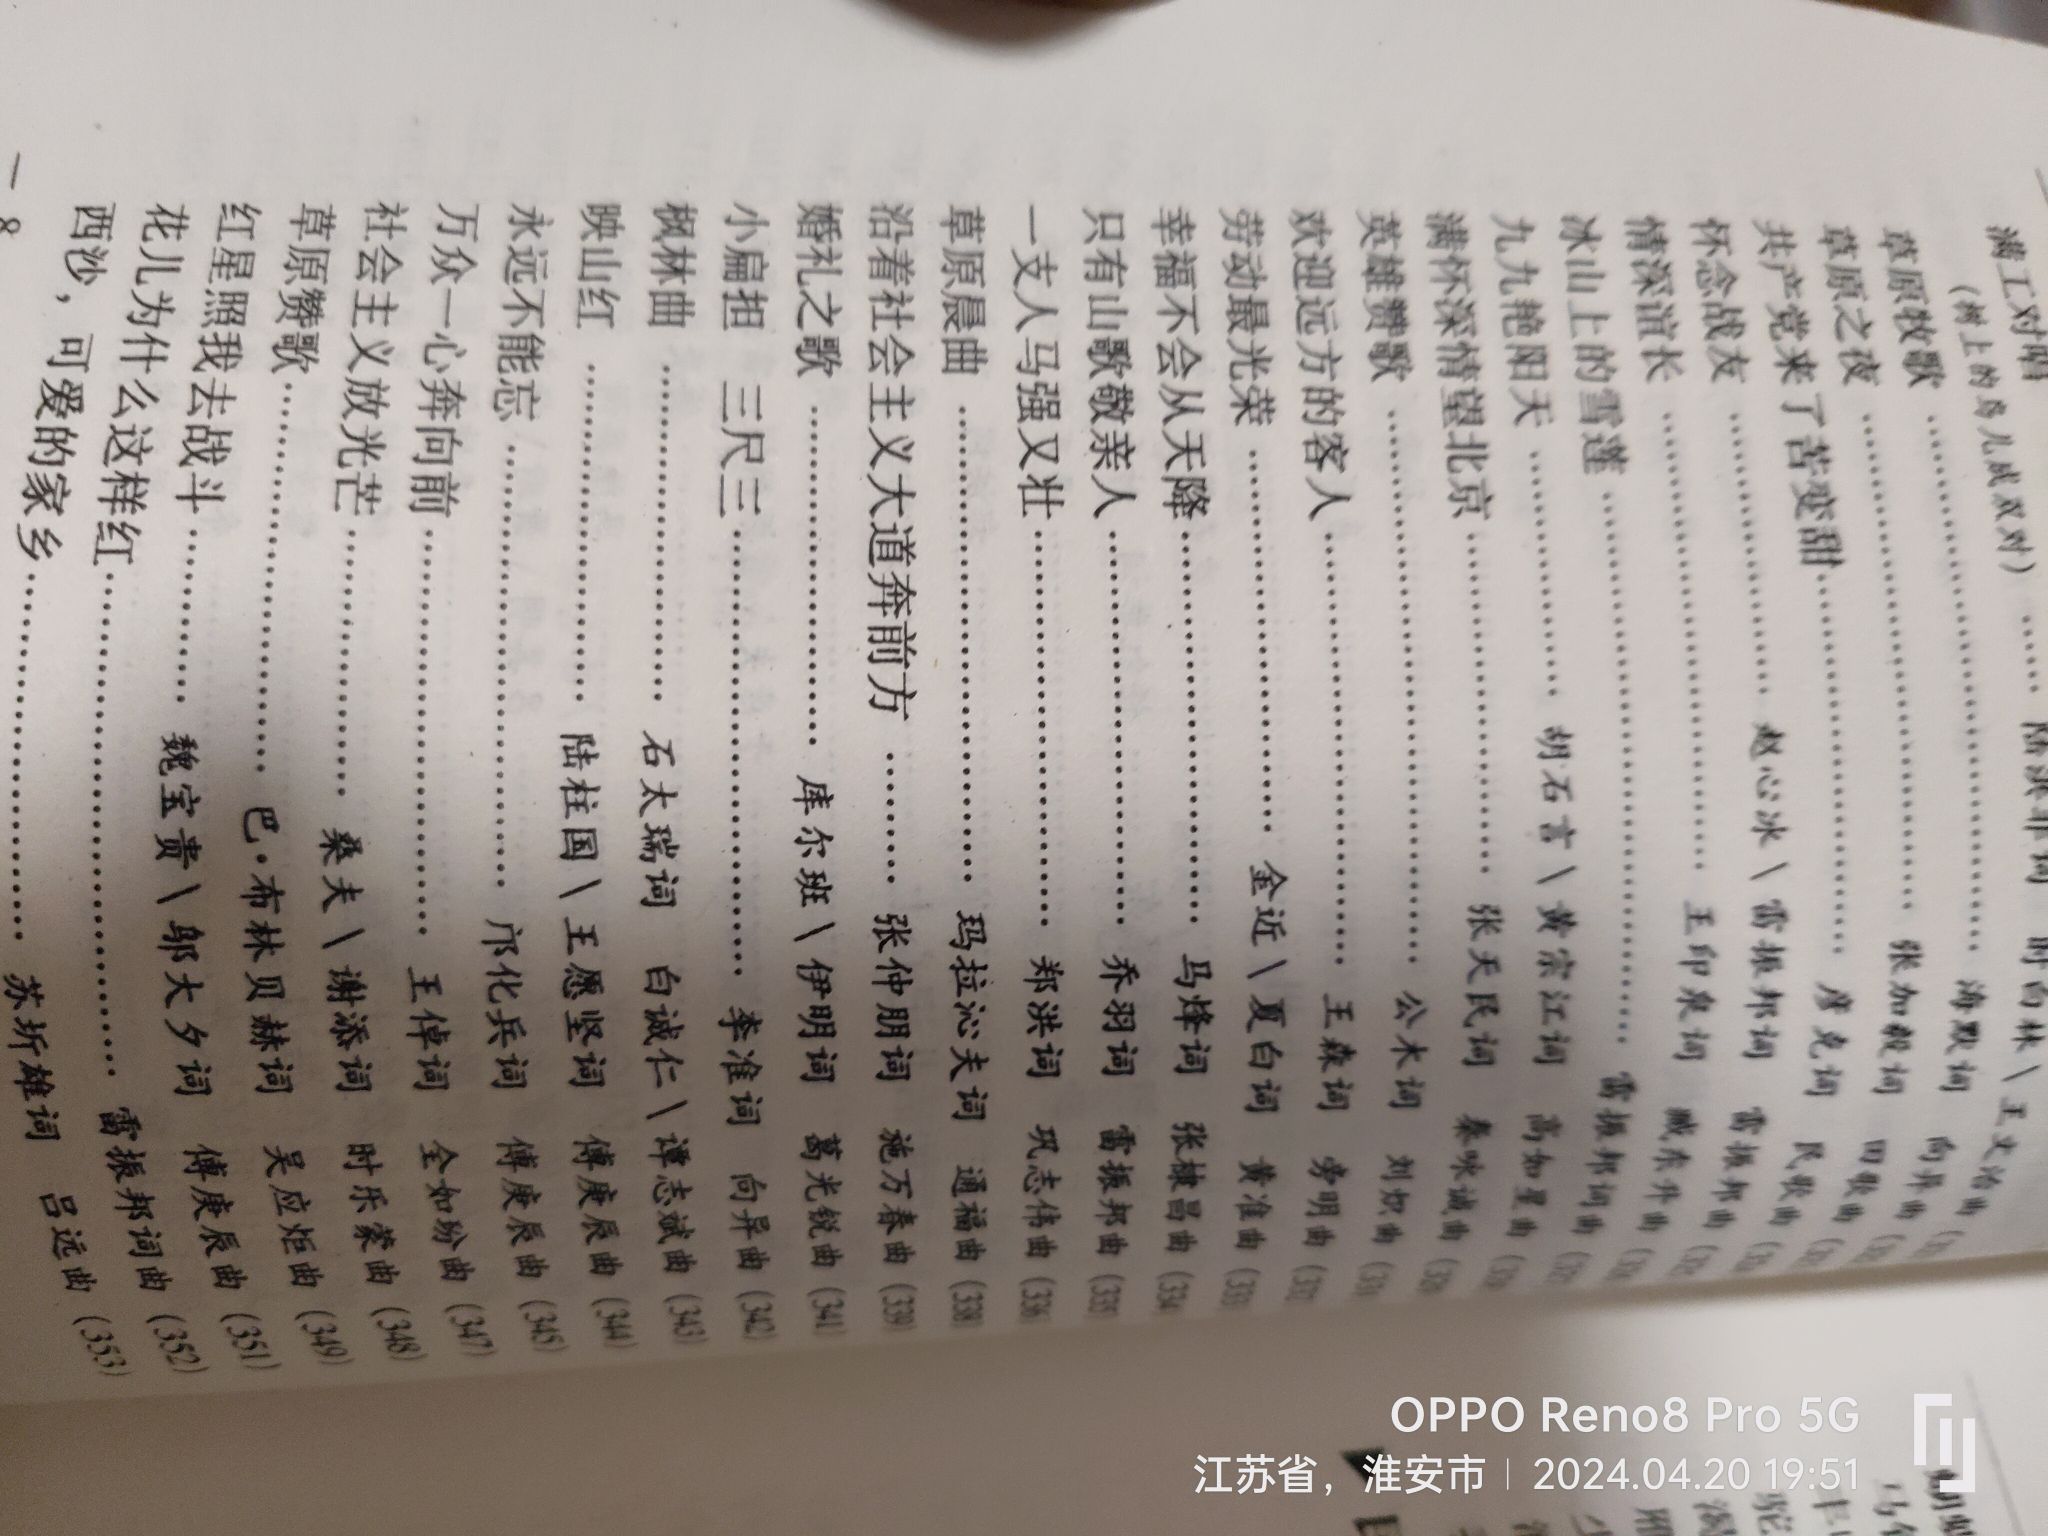 满工对唱
(树上的鸟儿成双对) …… 陆洪非词 时白林\王文治曲
草原牧歌 …… 海默词 向异曲
草原之夜 …… 张加毅词 田歌曲
共产党来了苦变甜 …… 彦克词 民歌曲
怀念战友 …… 赵心水\雷振邦词 雷振邦曲
情深谊长 …… 王印泉词 臧东升曲
冰山上的雪莲 …… 雷振邦词曲
九九艳阳天 …… 胡石言\黄宗江词 高如星曲
满怀深情望北京 …… 张天民词 秦咏诚曲
英雄赞歌 …… 公木词 刘炽曲
欢迎远方的客人 …… 王森词 旁明曲
劳动最光荣 …… 金近\夏白词 黄准曲 (333)
幸福不会从天降 …… 马烽词 张棣昌曲 (334)
只有山歌敬亲人 …… 乔羽词 雷振邦曲 (335)
一支人马强又壮 …… 郑洪词 巩志伟曲 (336)
草原晨曲 …… 玛拉沁夫词 通福曲 (338)
沿着社会主义大道奔前方 …… 张仲朋词 施万春曲 (339)
婚礼之歌 …… 库尔班\伊明词 葛光锐曲 (341)
小扁担 三尺三 …… 李准词 向异曲 (342)
枫林曲 …… 石太瑞词 白诚仁\谭志斌曲 (343)
映山红 …… 陆柱国\王愿坚词 傅庚辰曲 (344)
永远不能忘 …… 邝化兵词 傅庚辰曲 (345)
万众一心奔向前 …… 王倬词 全如玢曲 (347)
社会主义放光芒 …… 桑夫\谢添词 时乐蒙曲 (348)
草原赞歌 …… 巴·布林贝赫词 吴应炬曲 (349)
红星照我去战斗 …… 魏宝贵\邬大为词 傅庚辰曲 (351)
花儿为什么这样红 …… 雷振邦词曲 (352)
西沙，可爱的家乡 …… 苏圻雄词 吕远曲 (353)
— 8
OPPO Reno8 Pro 5G
江苏省，淮安市 | 2024.04.20 19:51